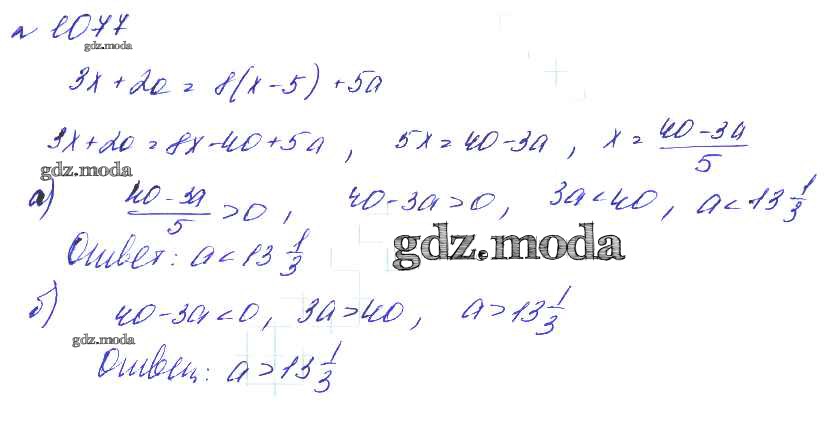 № 1077
gdz.moda
3x + 2a = 8(x - 5) + 5a
3x + 2a = 8x - 40 + 5a, 5x = 40 - 3a, x = (40 - 3a)/5
gdz.moda
а) (40 - 3a)/5 > 0, 40 - 3a > 0, 3a < 40, a < 13 1/3
gdz.moda
Ответ: a < 13 1/3
б) 40 - 3a < 0, 3a > 40, a > 13 1/3
gdz.moda
Ответ: a > 13 1/3